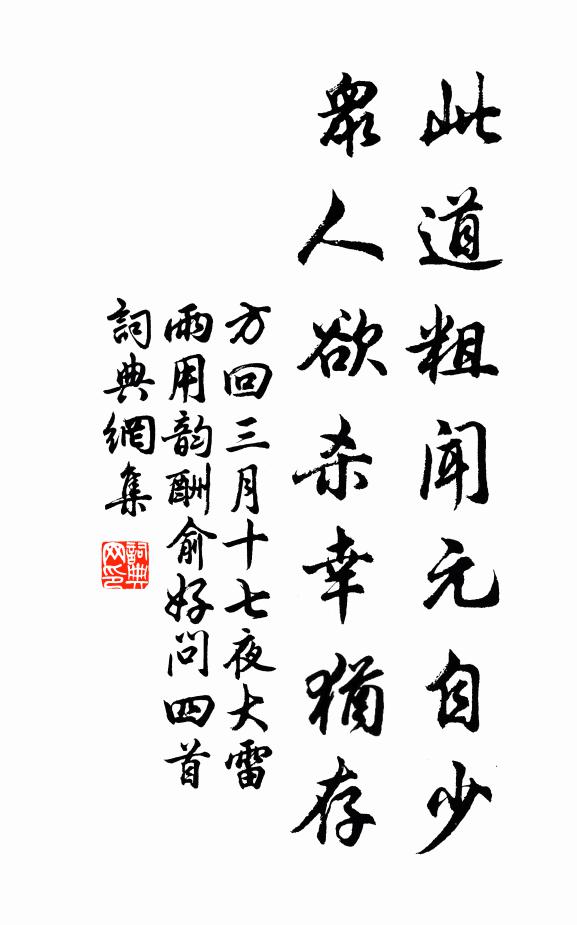 此道粗聞元自少
眾人欲杀幸猶存
方回三月十七夜大雷
雨用韵酬俞好問四首
詞典網集
詞典网印